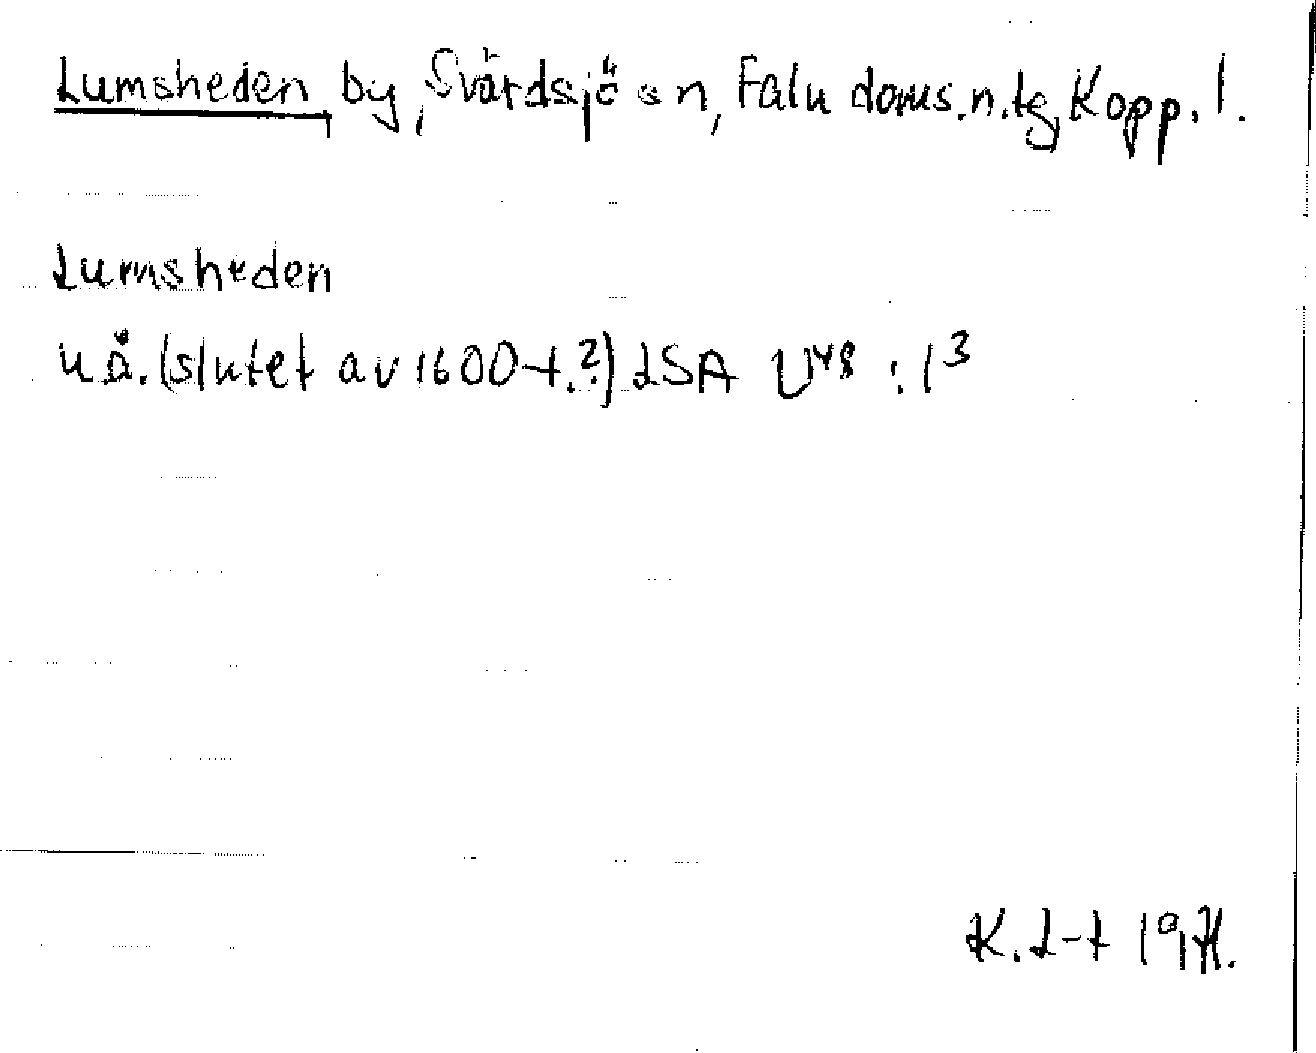 Lumsheden by, Svärdsjö sn, Falu doms.n.tg, Kopp. l.
Lumsheden
u å. (slutet av 1600-t.?) LSA U48:1³
K. L-t 1971.